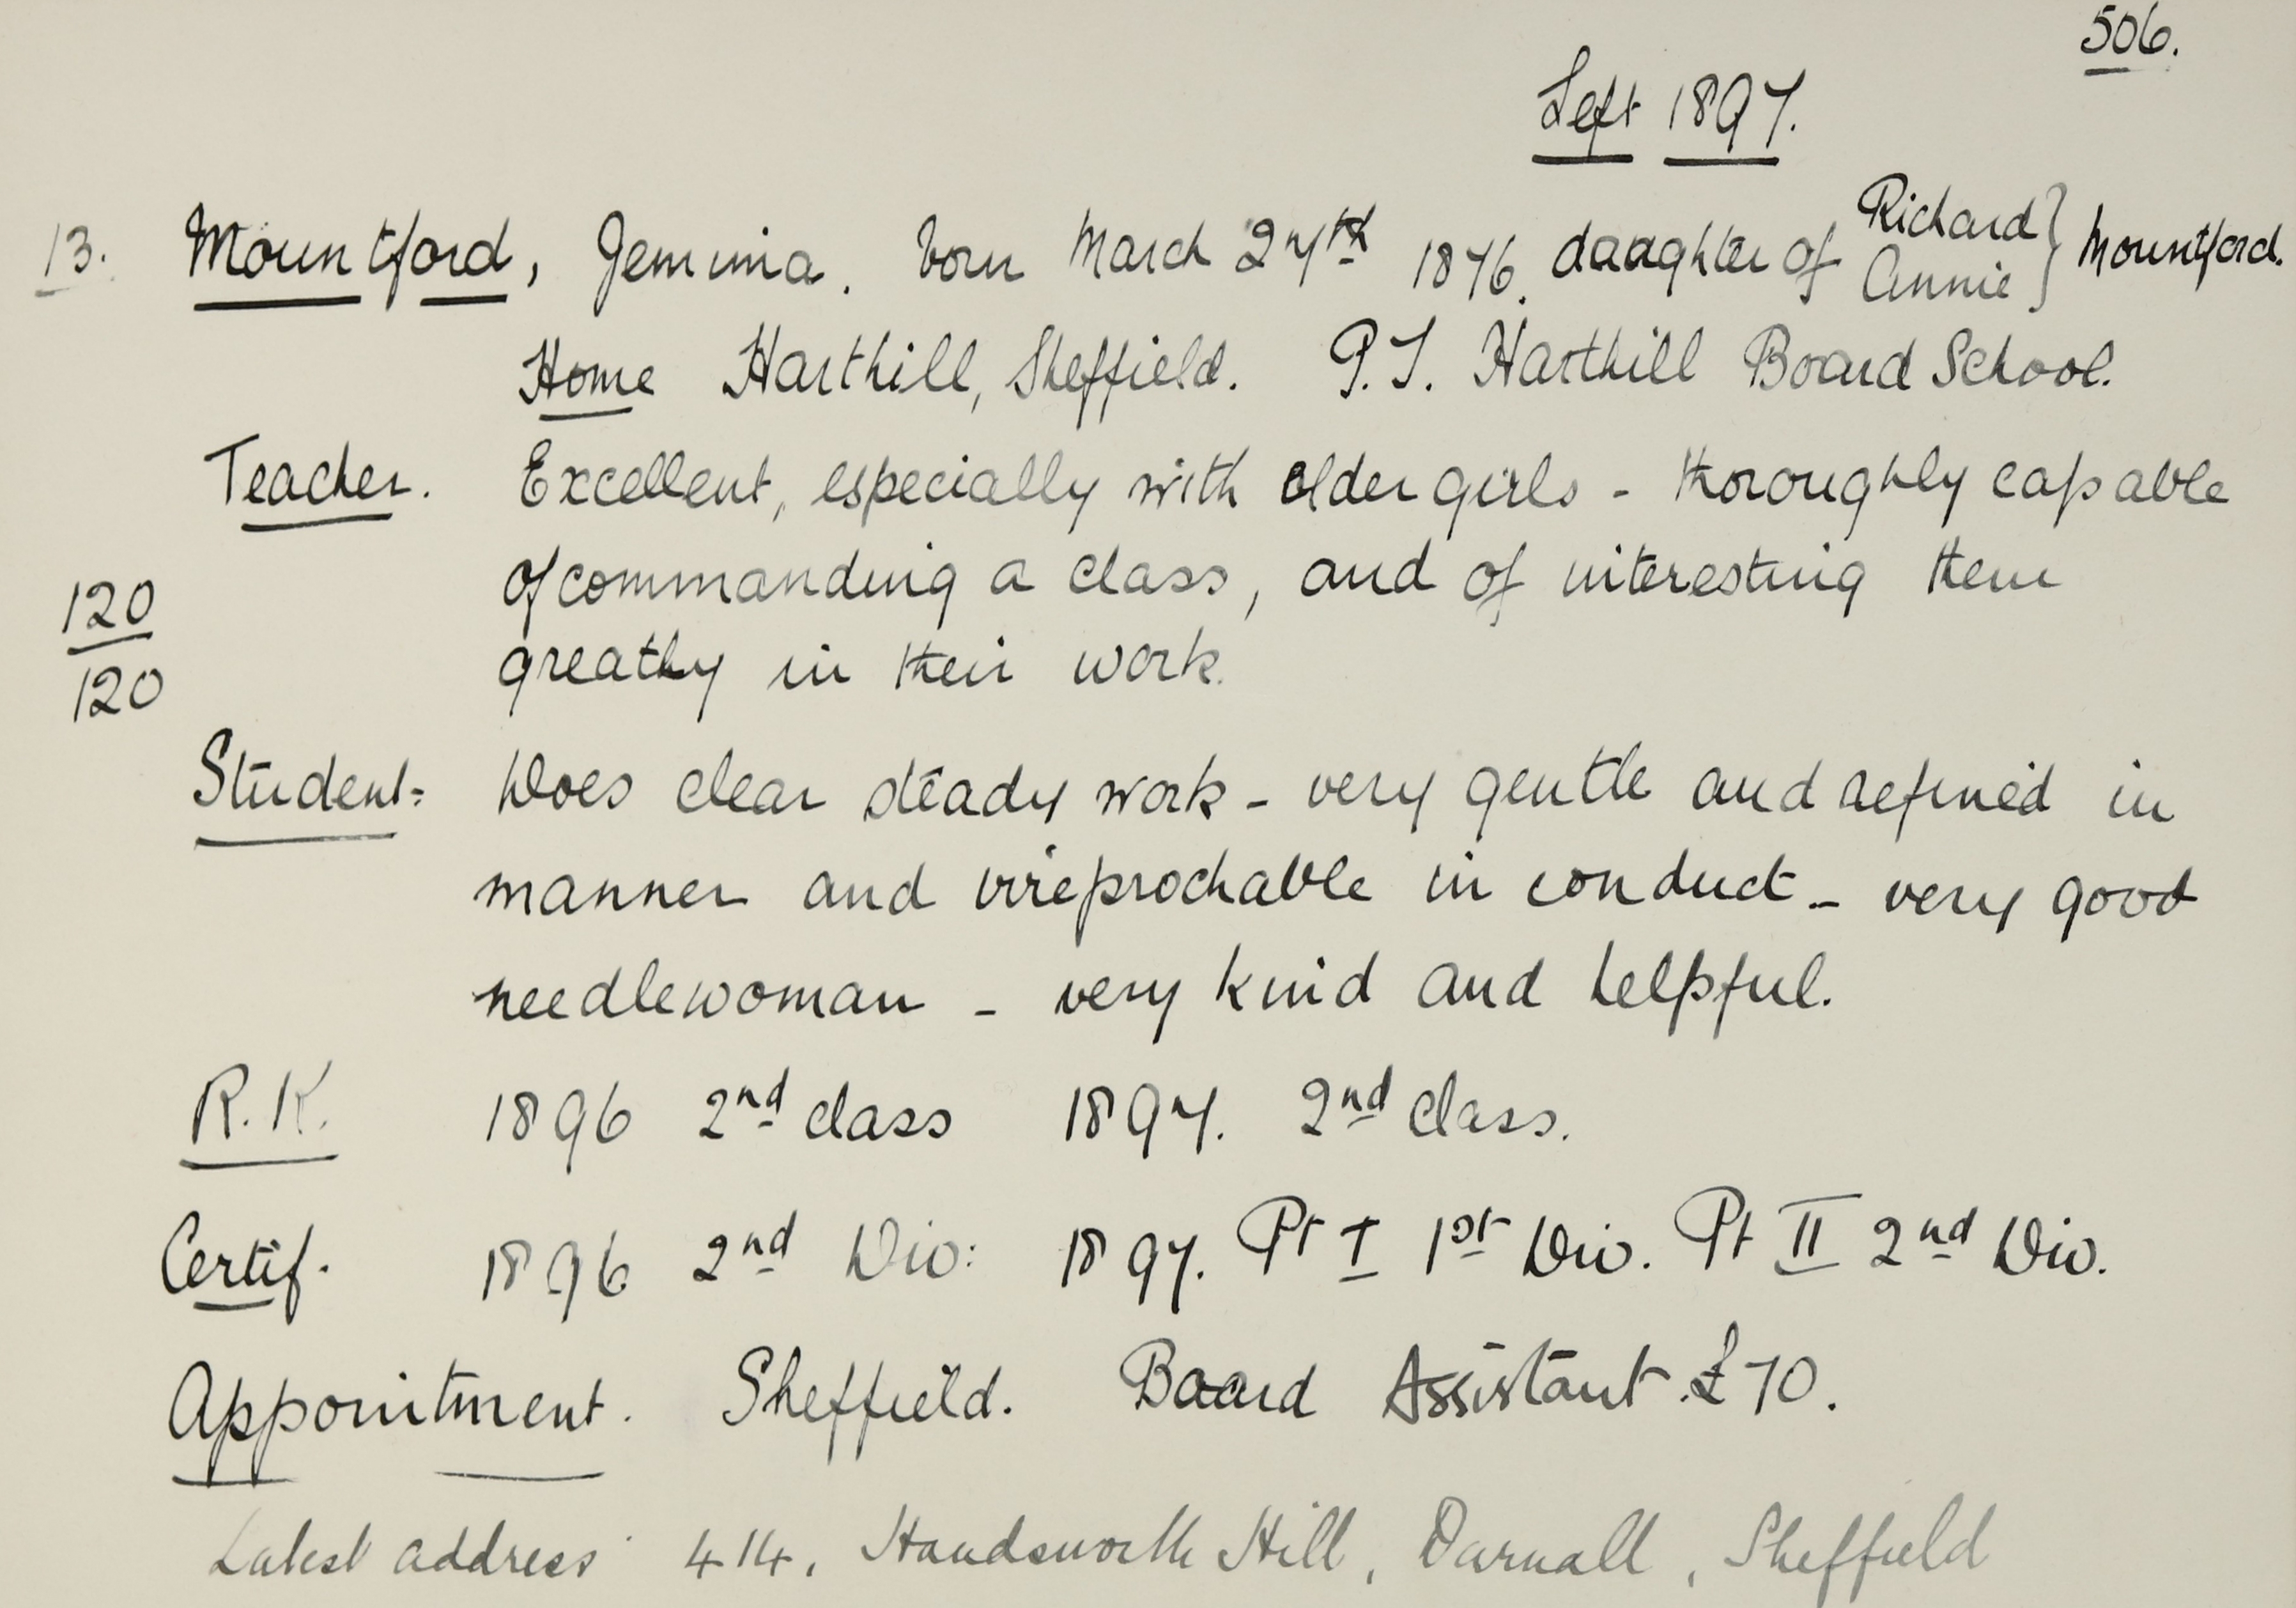 506.
Left 1897.
13. Mountford, Jemima. born March 27th 1876. daughter of Richard } Mountford.
Annie
Home Harthill, Sheffield. P.T. Harthill Board School.
Teacher. Excellent, especially with older girls - thoroughly capable
of commanding a class, and of interesting them
120
greatly in their work.
120
Student: Does clear steady work - very gentle and refined in
manner and irreprochable in conduct - very good
needlewoman - very kind and helpful.
R.K. 1896 2nd class 1897. 2nd class.
Certif. 1896 2nd Div: 1897. Pt I 1st Div. Pt II 2nd Div.
Appointment. Sheffield. Board Assistant. £70.
Latest address 414, Handsworth Hill, Darnall, Sheffield